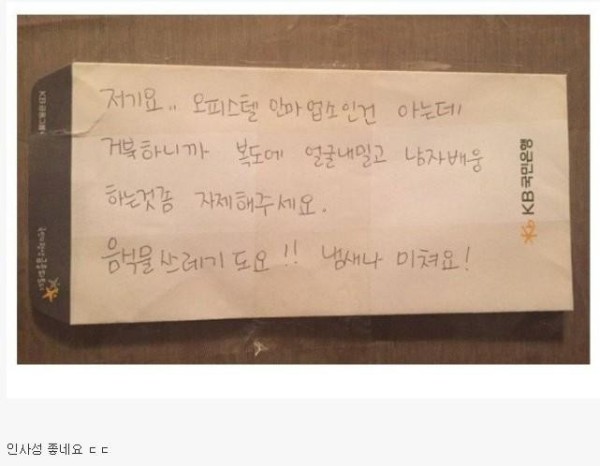 저기요.. 오피스텔 안마업소인건 아는데
거북하니까 복도에 얼굴내밀고 남자배웅
하는것좀 자제해주세요.
음식물쓰레기도요!! 냄새나 미쳐요!
KB국민은행
인사성 좋네요 ㄷㄷ